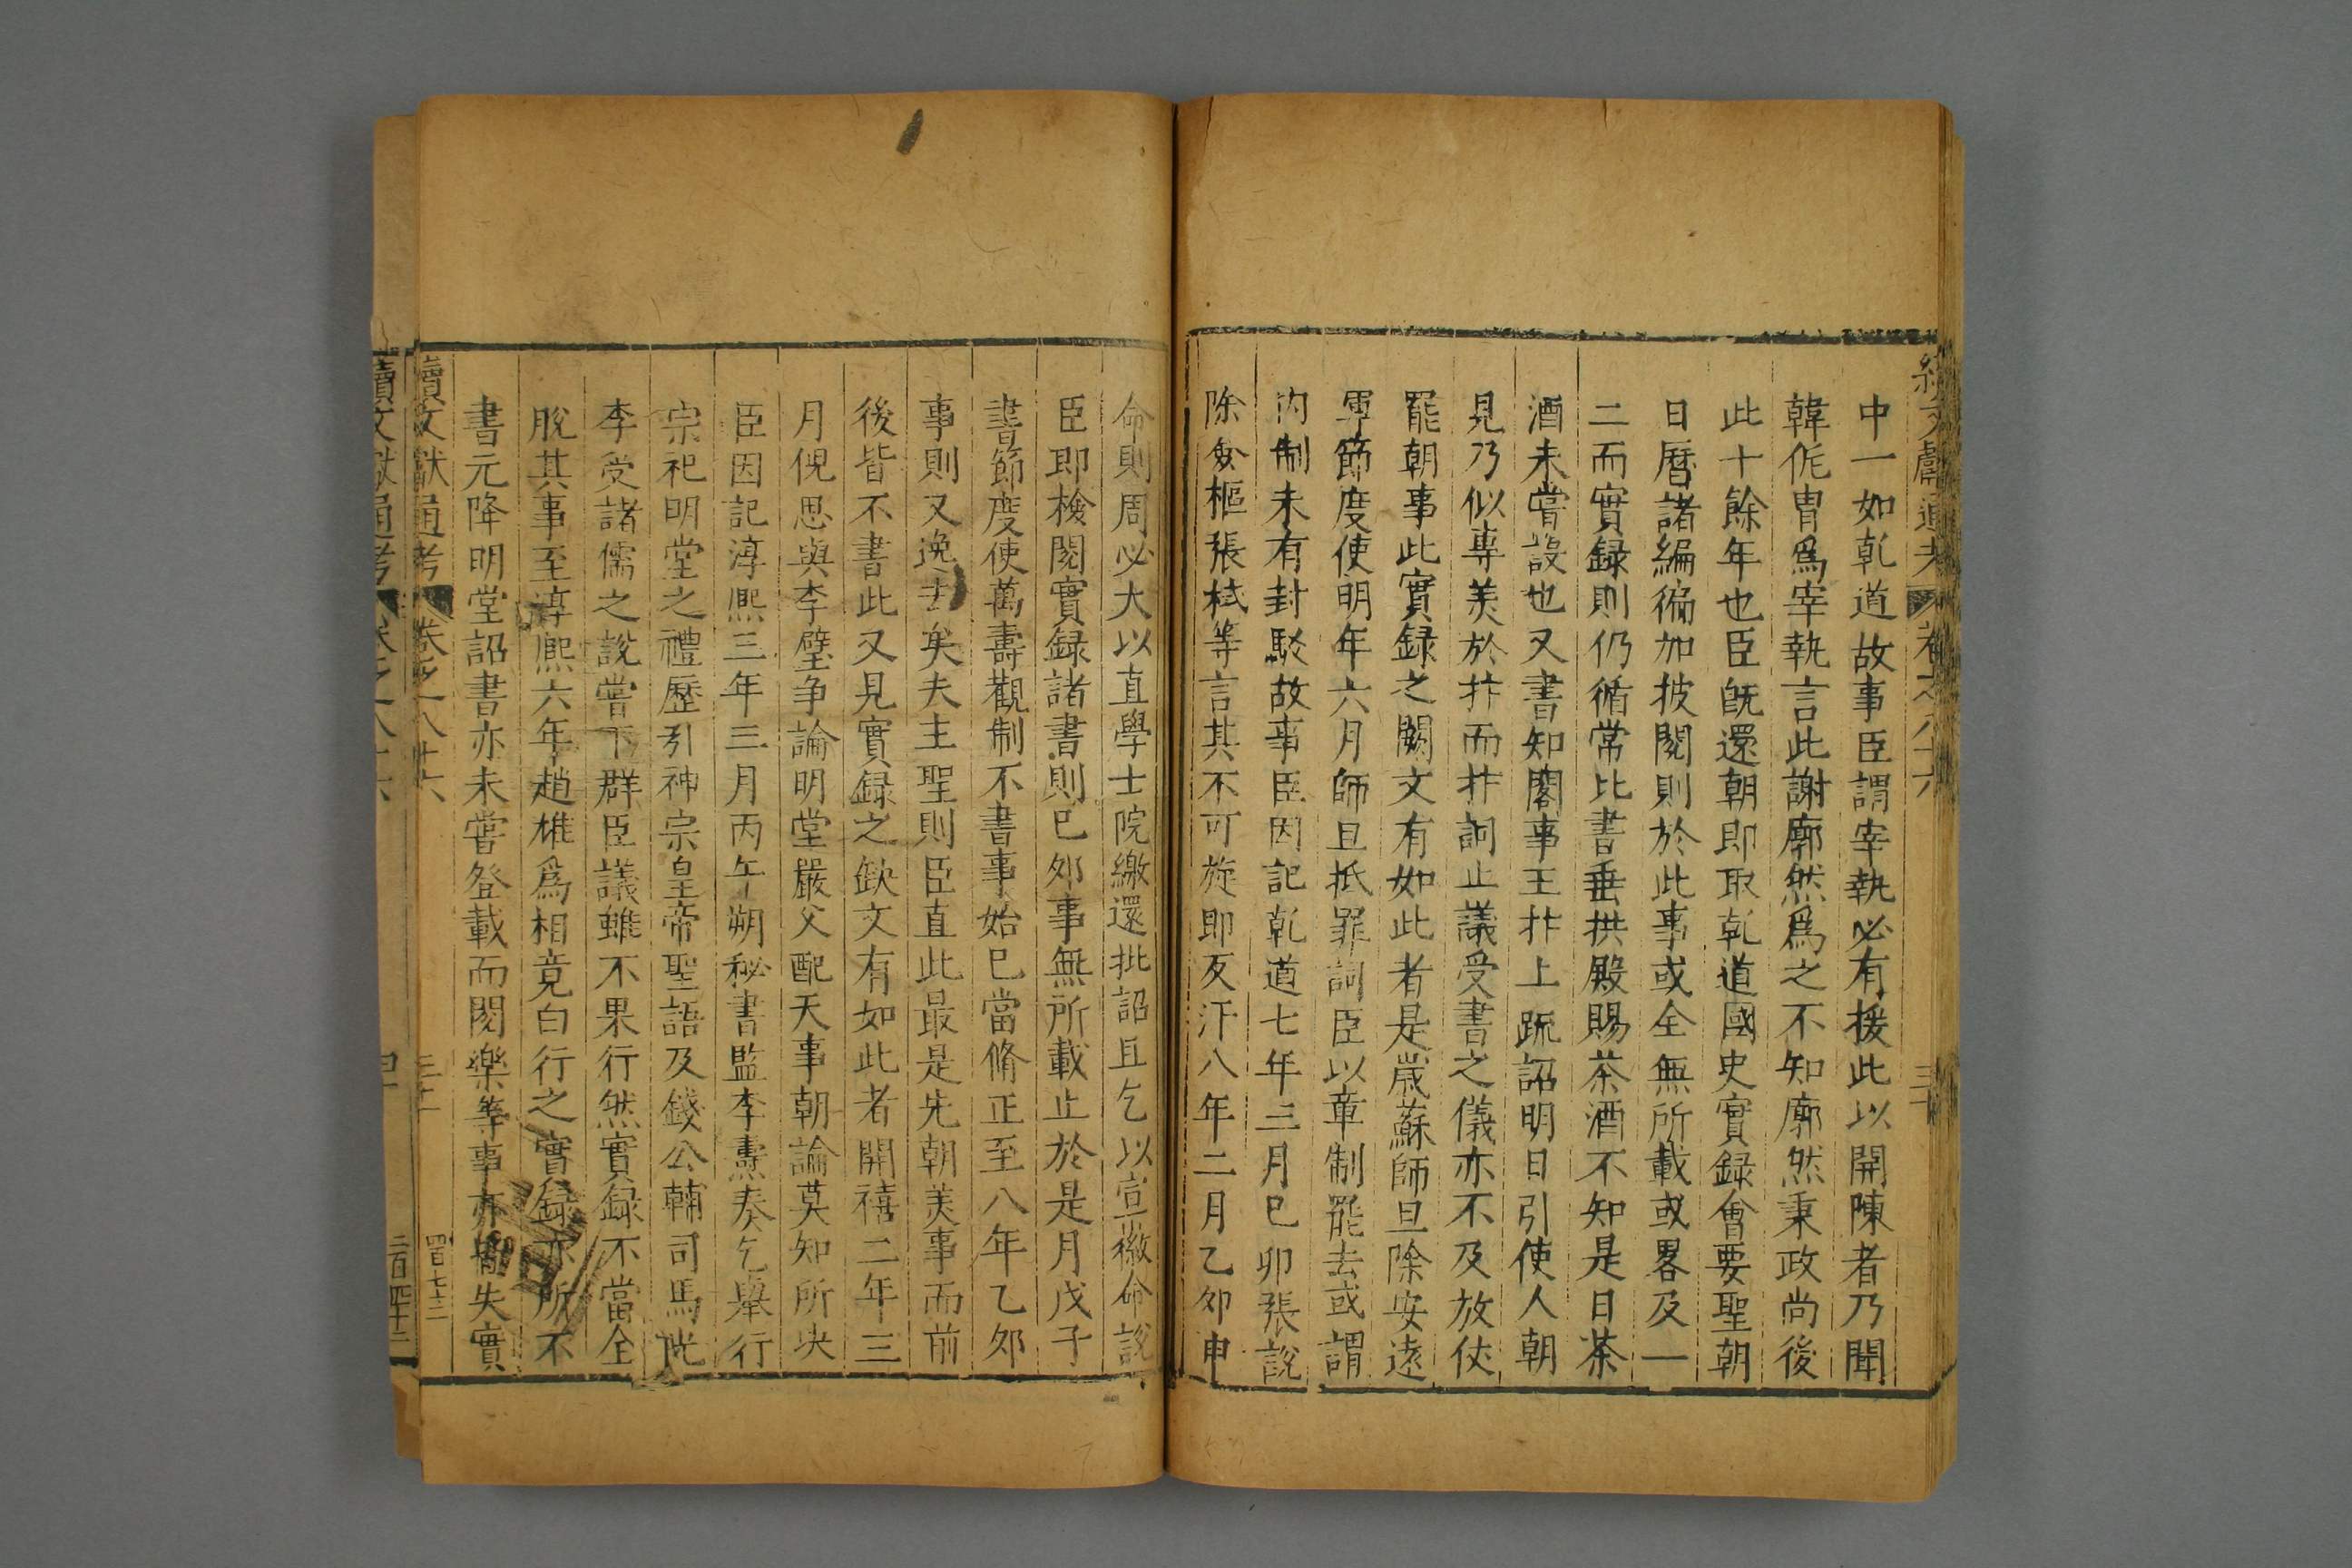 中一如乹道故事臣謂宰執必有援此以開陳者乃聞
韓侂胄爲宰執言此謝廓然爲之不知廓然秉政尚後
此十餘年也臣旣還朝即取乹道國史實録會要聖朝
日曆諸編徧加披閱則於此事或全無所載或畧及一
二而實録則仍循常比書垂拱殿賜茶酒不知是日茶
酒未嘗設也又書知閣事王抃上䟽詔明日引使人朝
見乃似專美於抃而抃詞止議受書之儀亦不及放仗
罷朝事此實録之闕文有如此者是歲蘇師旦除安逺
軍節度使明年六月師旦抵罪詞臣以章制罷去或謂
内制未有封駁故事臣因記乹道七年三月巳卯張說
除僉樞張栻等言其不可旋即反汗八年二月乙夘申
命則周必大以直學士院繳還批詔且乞以宣徽命說
臣即檢閱實録諸書則巳夘事無所載止於是月戊子
書節度使萬壽觀制不書事始巳當脩正至八年乙夘
事則又逸去矣夫主聖則臣直此最是先朝美事而前
後皆不書此又見實録之缺文有如此者開禧二年三
月倪思與李壁争論明堂嚴父配天事朝論莫知所决
臣因記淳熈三年三月丙午朔秘書監李燾奏乞舉行
宗祀明堂之禮歷引神宗皇帝聖語及錢公輔司馬光
李受諸儒之說嘗下群臣議雖不果行然實録不當全
脫其事至淳熈六年趙雄爲相竟白行之實録亦所不
書元降明堂詔書亦未嘗登載而閱樂等事亦失實
續文獻通考 卷之一八十六
四百七十二